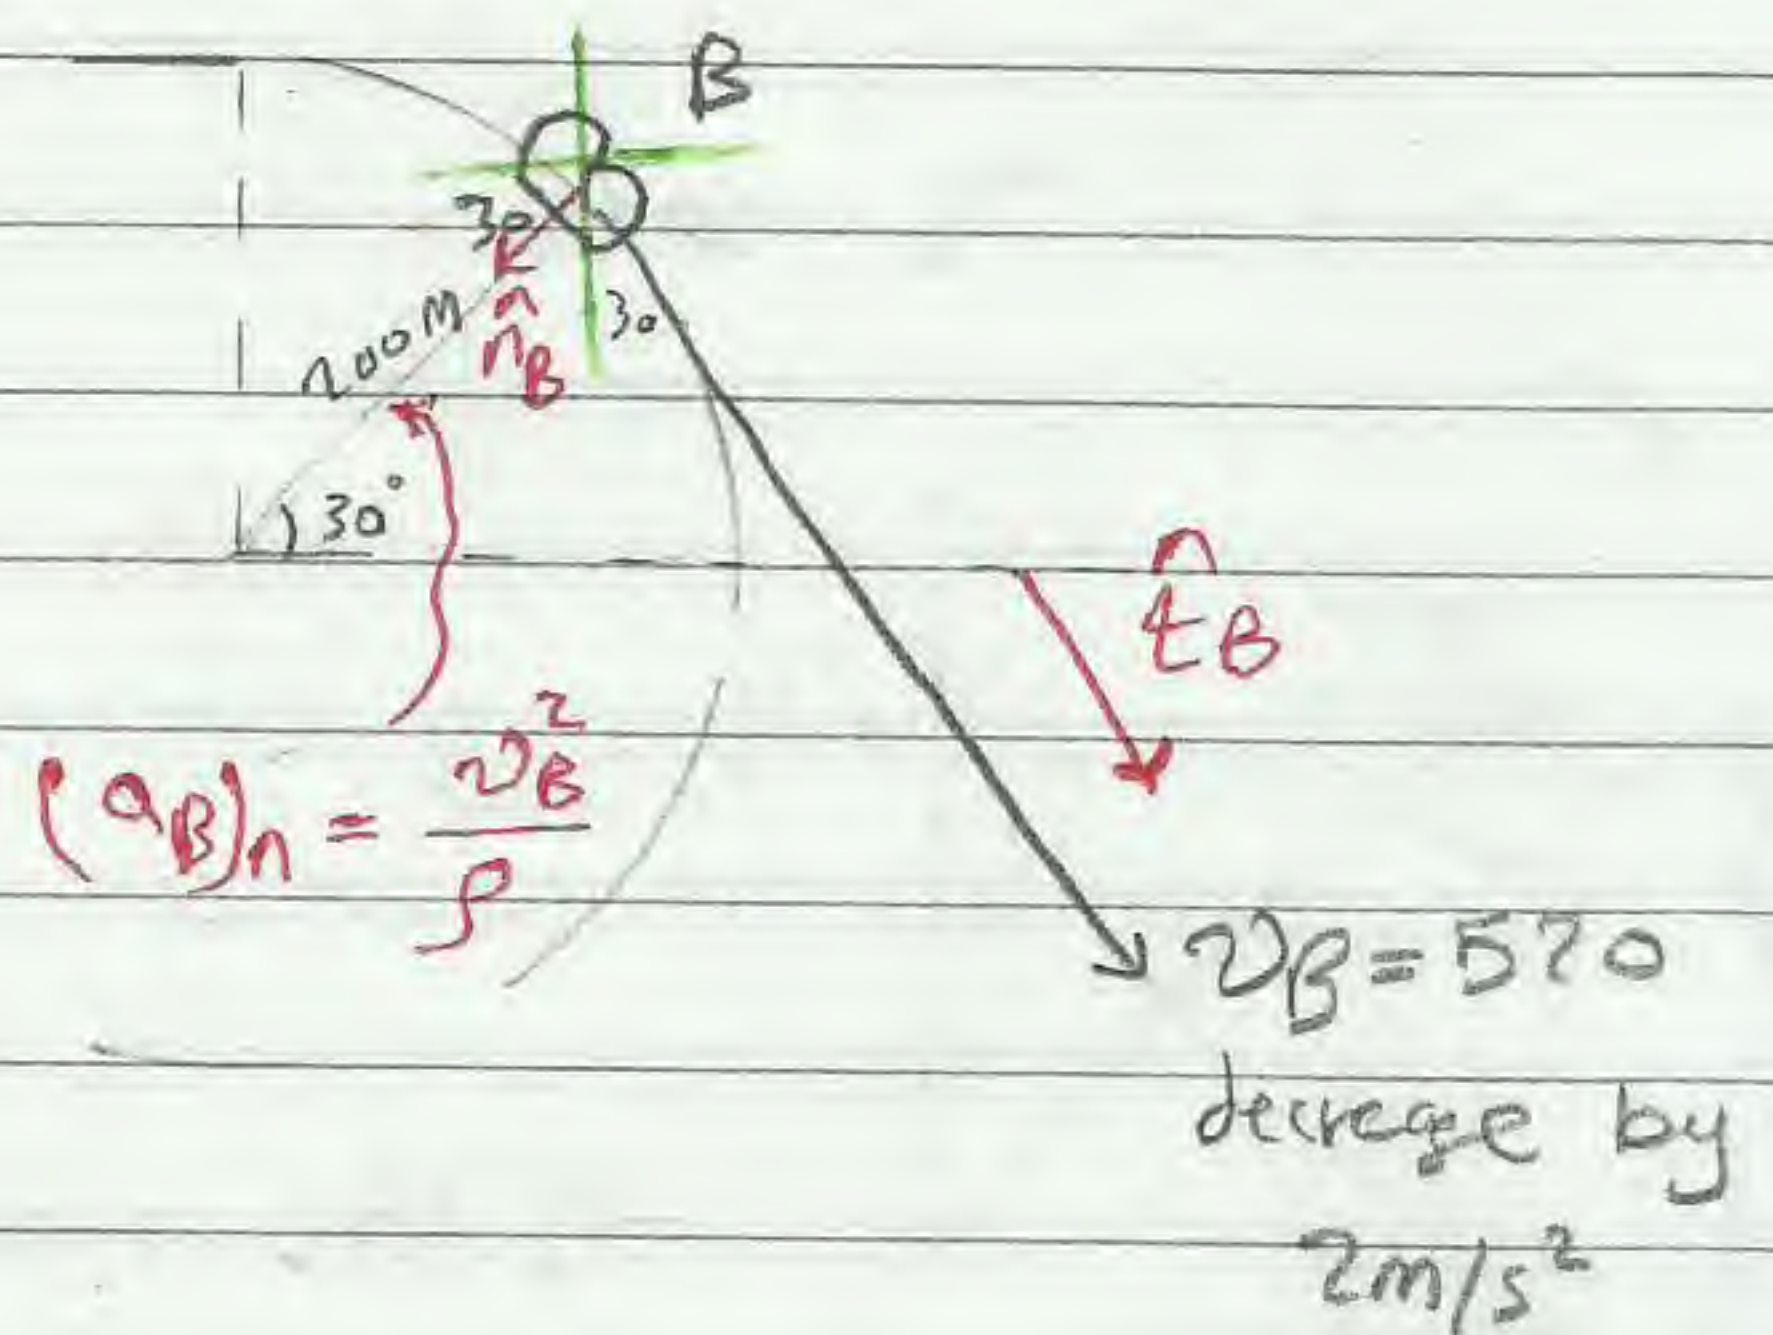 B
30
200M
n̂_B
30
30°
t̂_B
(a_B)_n = v_B^2 / ρ
v_B = 520
decrease by
2m/s²